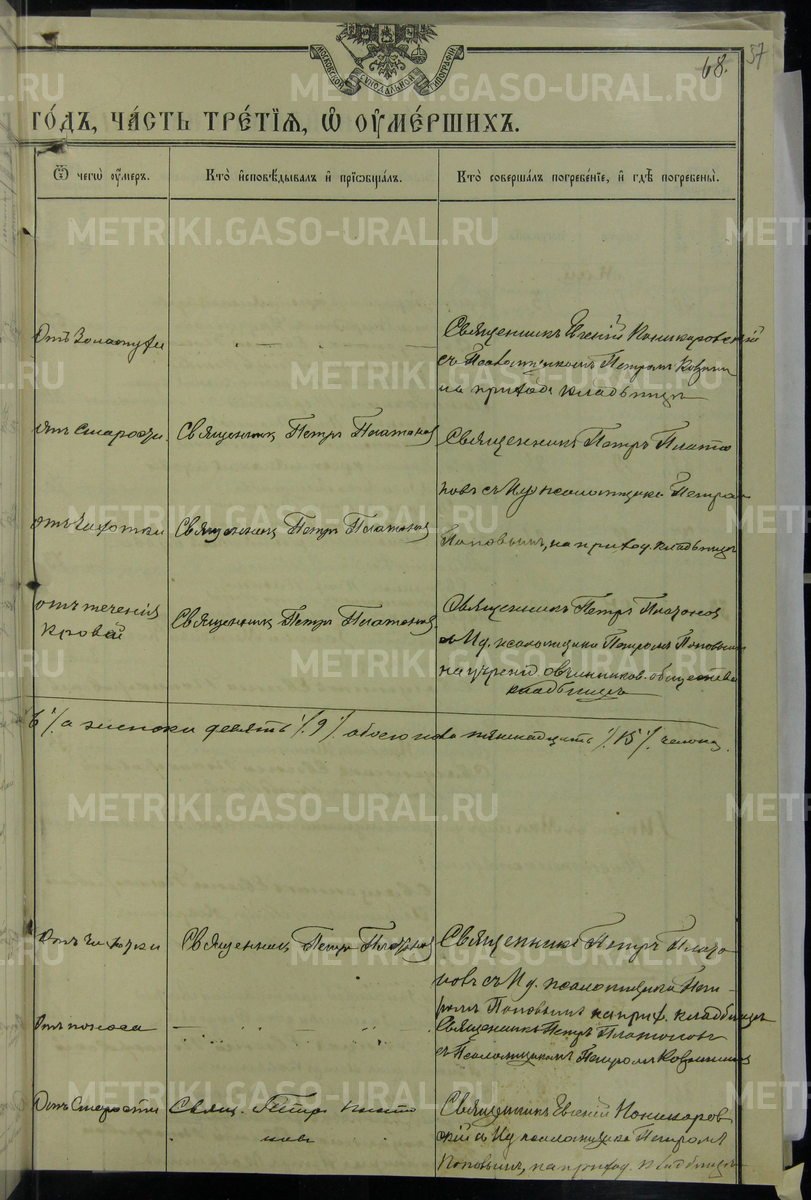 68. 57
МОСКОВСКОЙ СѴНОДАЛЬНОЙ ТИПОГРАФІИ
ГО́ДЪ, ЧА́СТЬ ТРЕ́ТЇѦ, Ѡ ОУ҆МЕ́РШИХЪ.
Ѿ чегѡ̀ оу҆́меръ.
Кто̀ и҆сповѣ́дывалъ и҆ прїѡбща́лъ.
Кто̀ соверша́лъ погребе́нїе, и҆ гдѣ̀ погребены̀.
Отъ Золотухи
Священникъ Евгеній Коникаровскій
съ Псаломщикомъ Петромъ
на приход. кладбищѣ
отъ старости
Священникъ Петръ Платоновъ
Священникъ Петръ Плато
новъ съ И д псаломщика Петром
отъ чахотки
Священникъ Петръ Платоновъ
Поповымъ, на приход. кладбищѣ
отъ теченія
кровей
Священникъ Петръ Платоновъ
Священникъ Петръ Платоновъ
съ И д. псаломщика Петромъ Поповымъ
на овчинников. общества
кладбищѣ
6 % а женски девять % 9 % обоего пола пятнадцать % 15 % челов.
Отъ чахотки
Священникъ Петръ Платоновъ
Священникъ Петръ Плато
новъ съ И д. псаломщика Пет-
ромъ Поповымъ на приход. кладбищѣ
отъ поноса
Священникъ Петръ Платоновъ
съ Псаломщикомъ Петромъ
Отъ Старости
Свящ. Петръ Плато
новъ
Священникъ Евгеній Коникаров
скій съ И д псаломщика Петромъ
Поповымъ, на приход. кладбищѣ
METRIKI.GASO-URAL.RU